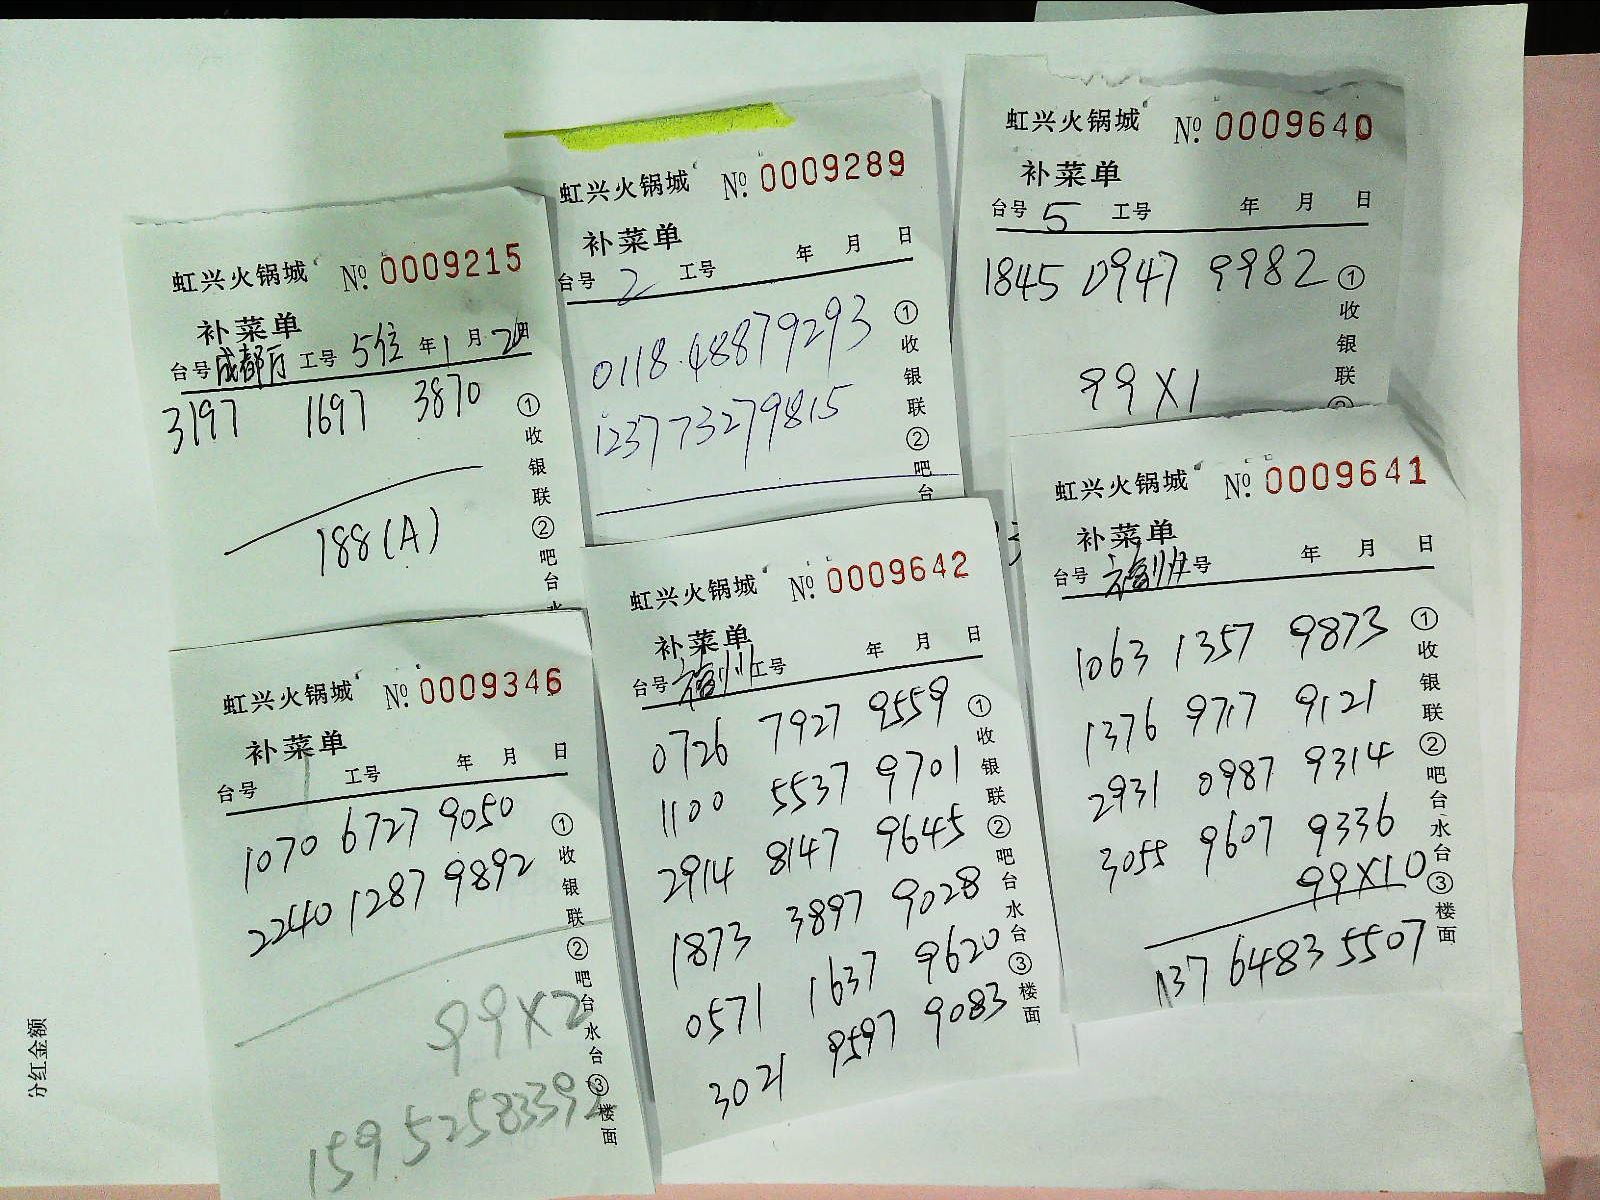 虹兴火锅城 No. 0009215
补菜单
台号 成都厅 工号 5位 年 1 月 2 日
3197 1697 3870
188(A)
①收银联②吧台水
虹兴火锅城 No. 0009289
补菜单
台号 2 工号 年 月 日
0118.48879293
123773279815
①收银联②吧台
虹兴火锅城 No. 0009640
补菜单
台号 5 工号 年 月 日
1845 0947 9982
99X1
①收银联②
虹兴火锅城 No. 0009346
补菜单
台号 工号 年 月 日
1070 6727 9050
2240 1287 9892
99X2
159 52583392
①收银联②吧台水台③楼面
虹兴火锅城 No. 0009642
补菜单
台号 福州 工号 年 月 日
0726 7927 9559
1100 5537 9701
2914 8147 9645
1873 3897 9028
0571 1637 9620
3021 9597 9083
①收银联②吧台水台③楼面
虹兴火锅城 No. 0009641
补菜单
台号 福州 工号 年 月 日
1063 1357 9873
1376 9717 9121
2931 0987 9314
3055 9607 9336
99X10
137 6483 5507
①收银联②吧台水台③楼面
分红金额